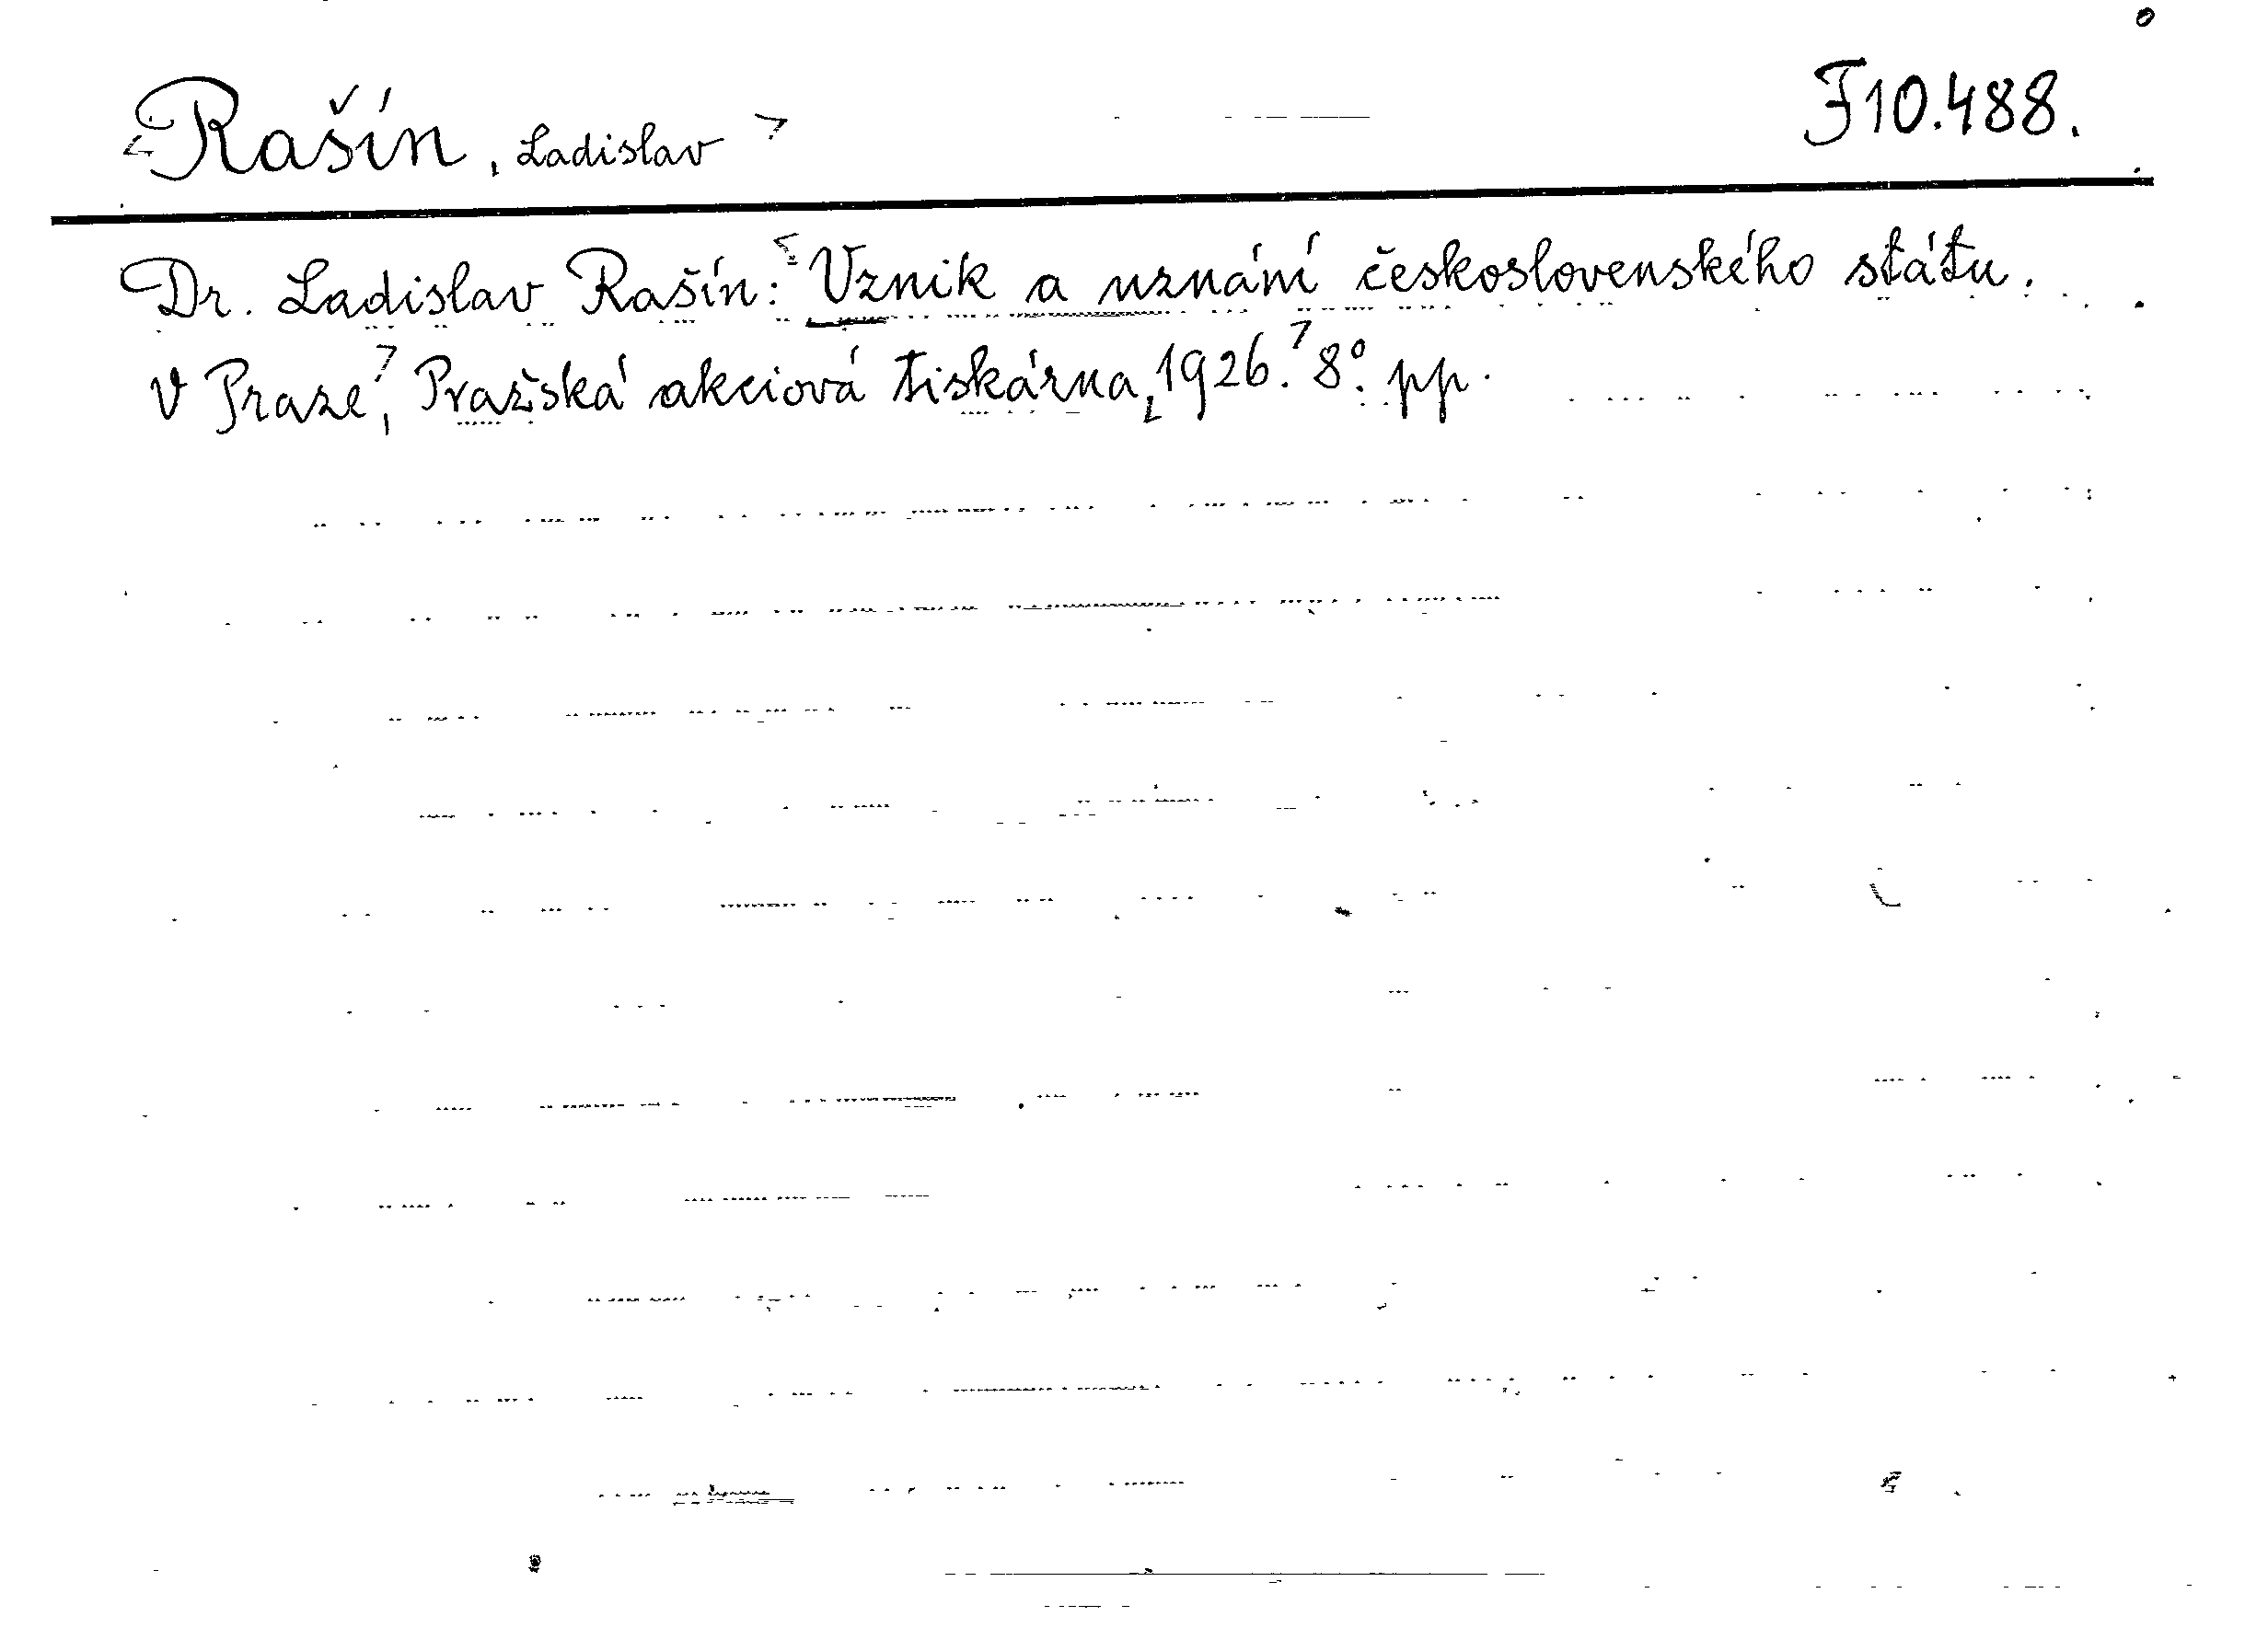 Rašín, Ladislav F10.488.
Dr. Ladislav Rašín: Vznik a uznání československého státu.
V Praze, Pražská akciová tiskárna, 1926. 8°. pp.